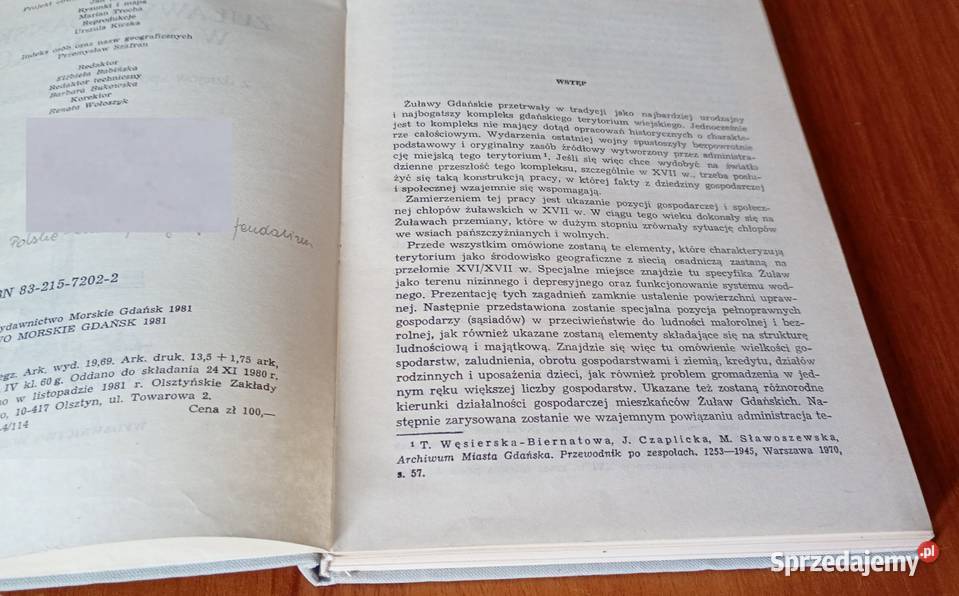 Rysunki i mapa
Marian Trocha
Reprodukcje
Urszula Kiczka
Indeks osób oraz nazw geograficznych
Przemysław Szafran
Redaktor
Elżbieta Babińska
Redaktor techniczny
Barbara Bukowska
Korektor
Renata Wołoszyk
Polskie feudalizm
83-215-7202-2
Wydawnictwo Morskie Gdańsk 1981
MORSKIE GDAŃSK 1981
egz. Ark. wyd. 19,69. Ark. druk. 13,5 + 1,75 ark,
IV kl. 60 g. Oddano do składania 24 XI 1980 r,
w listopadzie 1981 r. Olsztyńskie Zakłady
10-417 Olsztyn, ul. Towarowa 2.
Cena zł 100,—
4/114
WSTĘP
Żuławy Gdańskie przetrwały w tradycji jako najbardziej urodzajny
i najbogatszy kompleks gdańskiego terytorium wiejskiego. Jednocześnie
jest to kompleks nie mający dotąd opracowań historycznych o charakte-
rze całościowym. Wydarzenia ostatniej wojny spustoszyły bezpowrotnie
podstawowy i oryginalny zasób źródłowy wytworzony przez administra-
cję miejską tego terytorium ¹. Jeśli się więc chce wydobyć na światło
dzienne przeszłość tego kompleksu, szczególnie w XVII w., trzeba posłu-
żyć się taką konstrukcją pracy, w której fakty z dziedziny gospodarczej
i społecznej wzajemnie się wspomagają.
Zamierzeniem tej pracy jest ukazanie pozycji gospodarczej i społecz-
nej chłopów żuławskich w XVII w. W ciągu tego wieku dokonały się na
Żuławach przemiany, które w dużym stopniu zrównały sytuację chłopów
we wsiach pańszczyźnianych i wolnych.
Przede wszystkim omówione zostaną te elementy, które charakteryzują
terytorium jako środowisko geograficzne z siecią osadniczą zastaną na
przełomie XVI/XVII w. Specjalne miejsce znajdzie tu specyfika Żuław
jako terenu nizinnego i depresyjnego oraz funkcjonowanie systemu wod-
nego. Prezentację tych zagadnień zamknie ustalenie powierzchni upraw-
nej. Następnie przedstawiona zostanie specjalna pozycja pełnoprawnych
gospodarzy (sąsiadów) w przeciwieństwie do ludności małorolnej i bez-
rolnej, jak również ukazane zostaną elementy składające się na strukturę
ludnościową i majątkową. Znajdzie się więc tu omówienie wielkości go-
spodarstw, zaludnienia, obrotu gospodarstwami i ziemią, kredytu, działów
rodzinnych i uposażenia dzieci, jak również problem gromadzenia w jed-
nym ręku większej liczby gospodarstw. Ukazane też zostaną różnorodne
kierunki działalności gospodarczej mieszkańców Żuław Gdańskich. Na-
stępnie zarysowana zostanie we wzajemnym powiązaniu administracja te-
¹ T. Węsierska-Biernatowa, J. Czaplicka, M. Sławoszewska,
Archiwum Miasta Gdańska. Przewodnik po zespołach. 1253—1945, Warszawa 1970,
s. 57.
Sprzedajemy.pl